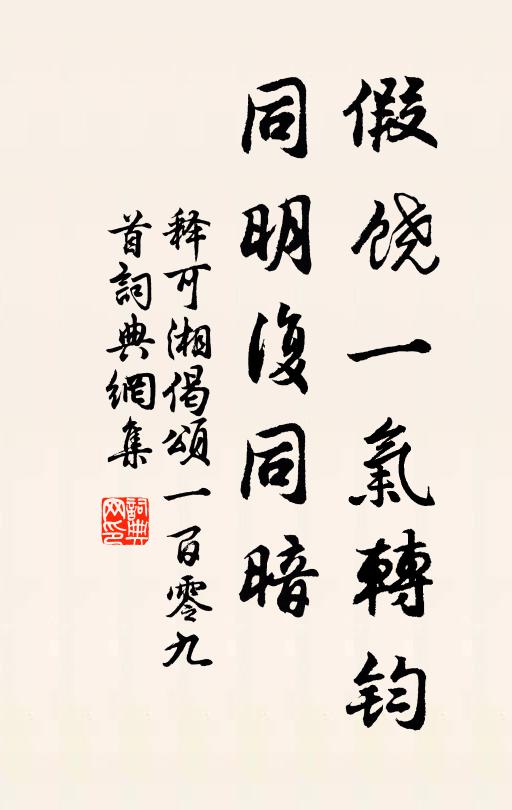 假饶一氣轉钧
同明復同暗
释可湘偈頌一百零九
首詞典網集
詞典
网印